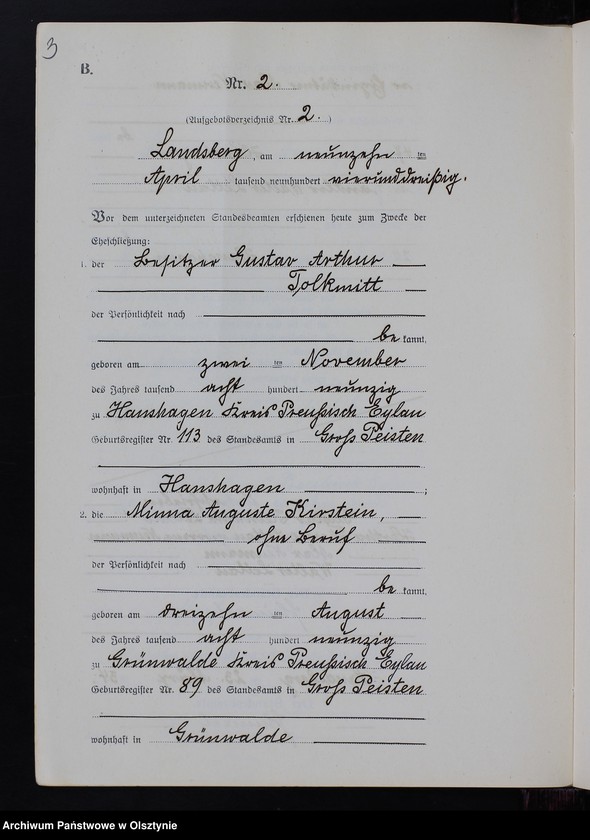 3
B.
Nr. 2.
(Aufgebotsverzeichnis Nr. 2.)
Landsberg, am neunzehn ten
April tausend neunhundert vierunddreißig.
Vor dem unterzeichneten Standesbeamten erschienen heute zum Zwecke der
Eheschließung:
1. der Besitzer Gustav Arthur
Tolkmitt
der Persönlichkeit nach
be kannt,
geboren am zwei ten November
des Jahres tausend acht hundert neunzig
zu Hanshagen Kreis Preußisch Eylau
Geburtsregister Nr. 113 des Standesamts in Gross Peisten
wohnhaft in Hanshagen ;
2. die Minna Auguste Kirstein,
ohne Beruf
der Persönlichkeit nach
be kannt,
geboren am dreizehn ten August
des Jahres tausend acht hundert neunzig
zu Grünwalde Kreis Preußisch Eylau
Geburtsregister Nr. 89 des Standesamts in Gross Peisten
wohnhaft in Grünwalde
Archiwum Państwowe w Olsztynie